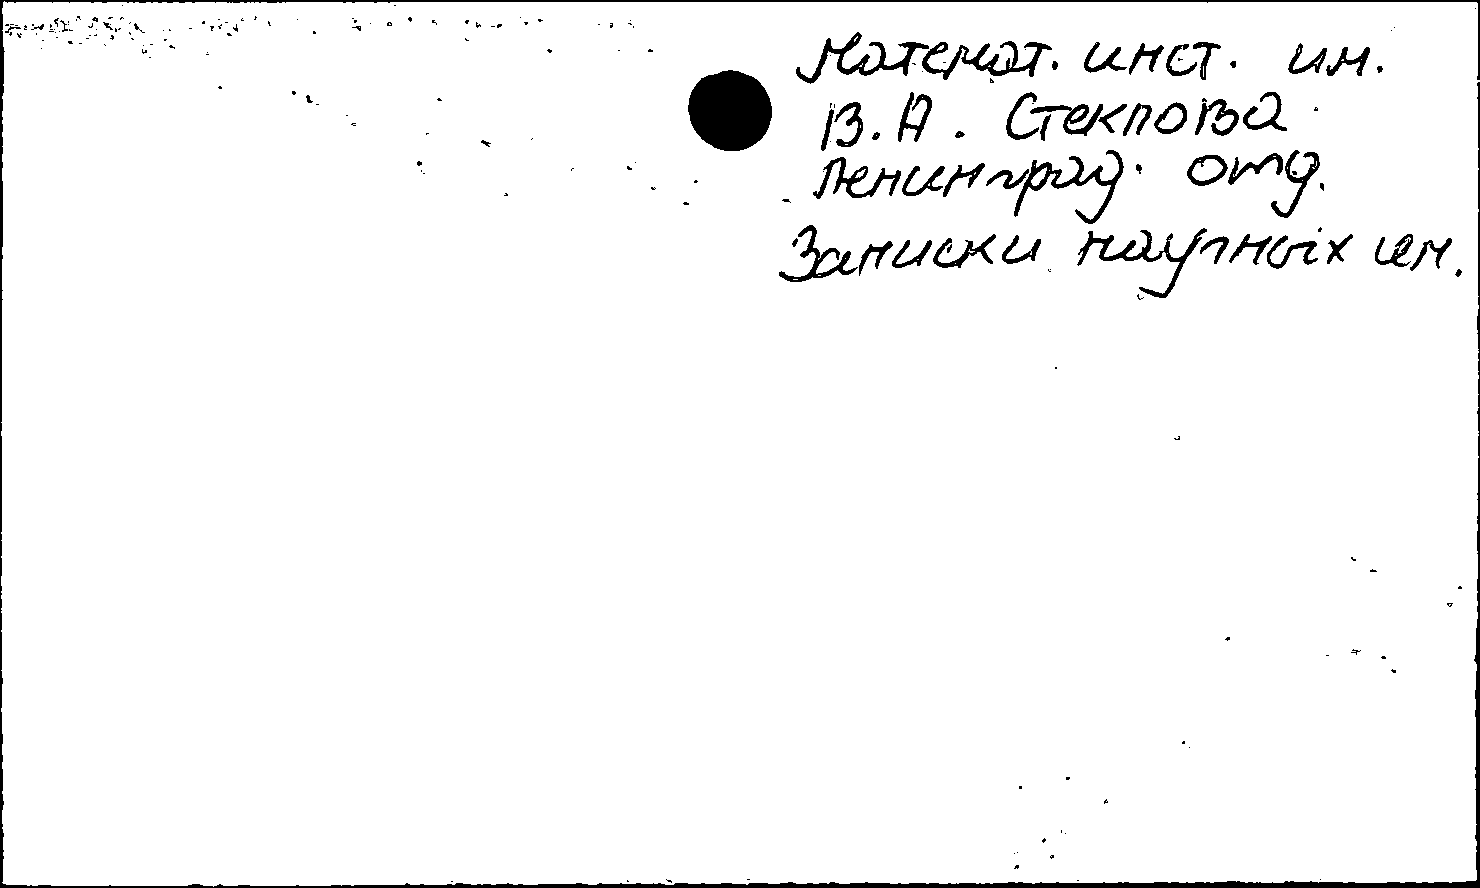 Математ. инст. им.
В.А. Стеклова
Ленинград. отд.
Записки научных